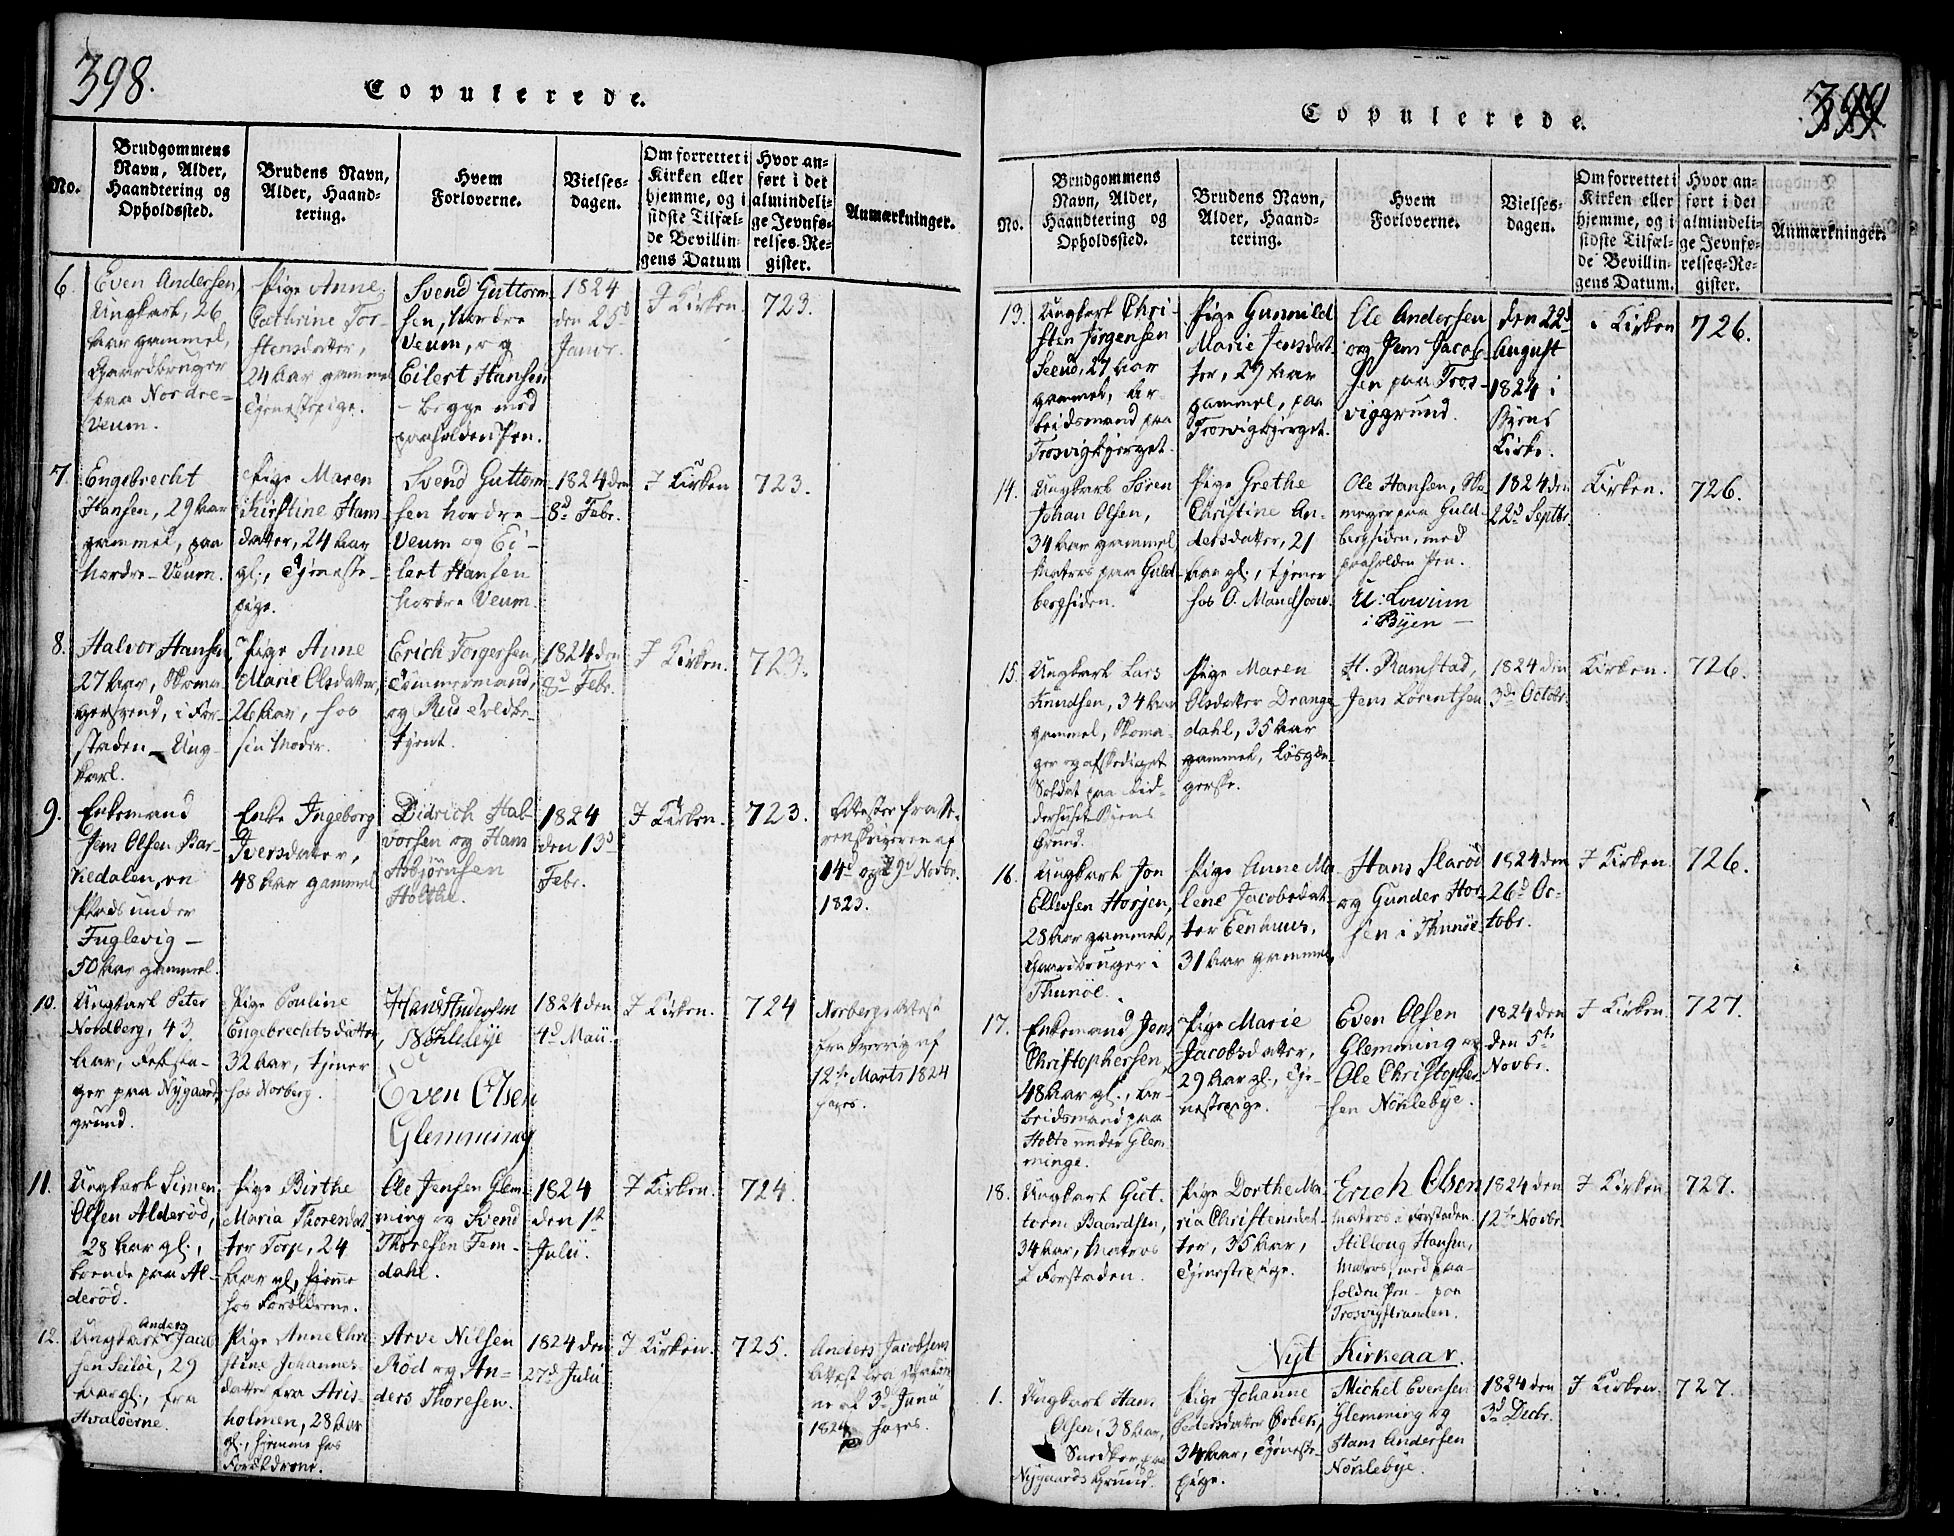 398.
Copulerede.
No.
Brudgommens
Navn, Alder,
Haandtering og
Opholdssted.
Brudens Navn,
Alder, Haand-
tering.
Hvem
Forloverne.
Vielses-
dagen.
Om forrettet i
Kirken eller
hjemme, og i
sidste Tilfæl-
de Bevillin-
gens Datum
Hvor an-
ført i det
almindeli-
ge Jevnfø-
relses-Re-
gister.
Anmærkninger.
6.
Even Andersen,
Ungkarl, 26
Aar gammel,
Gaardbruger
paa Nordre-
Veum.
Pige Anne
Cathrine Tor-
stensdatter,
24 Aar gammel
Tjenestepige.
Svend Guttorm-
sen, Nordre
Veum, og
Eilert Hansen
- begge med
paaholden Pen.
1824
den 25d
Januar.
I Kirken.
723.
7.
Engebrecht
Hansen, 29 Aar
gammel, paa
Nordre-Veum.
Pige Maren
Kirstine Hans
datter, 24 Aar
gl., Tjeneste-
pige.
Svend Guttorm-
sen Nordre-
Veum og Ei-
lert Hansen
Nordre Veum.
1824 den
8d Febr.
I Kirken
723.
8.
Halvor Hansen,
27 Aar, Skoma-
gersvend, i For-
staden - Ung-
karl.
Pige Anne
Marie Olsdatter,
26 Aar, hos
sin Moder.
Erich Torgersen,
Tømmermand,
og Rud Feldbe-
tjent.
1824 den
8d Febr.
I Kirken.
723.
9.
Enkemand
Jens Olsen Bar-
kiedalen, en
Plads under
Fuglevig -
50 Aar gammel.
Enke Ingeborg
Iversdatter,
48 Aar gammel
Didrich Hal-
vorsen og Hans
Asbjørnsen
Holthe.
1824
den 13d
Febr.
I Kirken.
723.
Attester fra So-
renskriveren af
14d og 29d Novbr.
1823.
10.
Ungkarl Peter
Nordberg, 43
Aar,
paa Nygaards
grund.
Pige Pouline
Engebrechtsdatter,
32 Aar, tjener
hos Norberg.
Hans Andersen
Nøklebye
Even Olsen
Glemming
1824 den
4d Maii
I Kirken.
724
Norbergs Attest
fra Sverrig af
12te Marts 1824
haves.
11.
Ungkarl Simen
Olsen Alderød,
28 Aar gl.,
boende paa Al-
derød.
Pige Birthe
Maria Thoresdat-
ter Torp, 24
Aar gl., hjemme
hos Forældrene.
Ole Jensen Glem-
ming og Svend
Thoresen Tem-
dahl.
1824
den 1te
Julii.
I Kirken.
724.
12.
Ungkarl Anders Jacob-
sen Seiløe, 29
Aar gl., fra
Hvaløerne.
Pige Anne Chri-
stine Johannes-
datter fra Aris-
holmen, 28 Aar
gl., hjemme hos
Forældrene.
Arve Nilsen
Rød og An-
ders Thoresen.
1824 den
27d Julii
I Kirken.
725.
Anders Jacobsens
Attest fra
af 3d Junii
1824 haves.
399
Copulerede.
No.
Brudgommens
Navn, Alder,
Haandtering og
Opholdssted.
Brudens Navn,
Alder, Haand-
tering.
Hvem
Forloverne.
Vielses-
dagen.
Om forrettet i
Kirken eller
hjemme, og i
sidste Tilfæl-
de Bevillin-
gens Datum.
Hvor an-
ført i det
almindeli-
ge Jevnfø-
relses-Re-
gister.
Anmærkninger.
13.
Ungkarl Chri-
sten Jørgensen
Seeud, 27 Aar
gammel, Ar-
beidsmand paa
Trosvigbjerget.
Pige Gunnild
Marie Jensdat-
ter, 29 Aar
gammel, paa
Trosvigbjerget.
Ole Andersen
og Jens Jacob-
sen paa Tros-
viggrund.
den 22d
August
1824 i
Byens
Kirke.
i Kirken
726.
14.
Ungkarl Søren
Johan Olsen,
34 Aar gammel
Matros paa Guld-
bergsiden.
Pige Grethe
Christine An-
dersdatter, 21
Aar gl., tjener
hos O. Mandsoov.
Ole Hansen, Sko-
mager paa Guld-
bergsiden, med
paaholden Pen.
U: Lovium
i Byen -
1824 den
22d Septbr.
Kirken.
726.
15.
Ungkarl Lars
Knudsen, 34 Aar
gammel, Skoma-
ger og afskediget
Soldat paa
Byens
Grund.
Pige Maren
Olsdatter Drange-
dahl, 35 Aar
gammel, Løsgæn-
gerske.
H. Ramstad,
Jens Lorentsen
1824 den
3de Octobr.
Kirken.
726.
16.
Ungkarl Jon
Ellevsen Horjen,
28 Aar gammel,
Gaardbruger i
Thunøe.
Pige Anne Ma-
lene Jacobsdat-
ter Eenhuus,
31 Aar gammel,
Hans Slarød
og Gunder Hor-
sen i Thunøe.
1824 den
26d Oc-
tobr.
I Kirken.
726.
17.
Enkemand Jens
Christophersen,
48 Aar gl., Ar-
beidsmand paa
Holte under Glem
minge.
Pige Marie
Jacobsdatter,
29 Aar gl., Tje-
nestepige.
Even Olsen
Glemming og
Ole Christopher-
sen Nøklebye.
1824 den
den 5te
Novbr.
I Kirken.
727.
18.
Ungkarl Gut-
torm Baardsen,
34 Aar, Matros
i Forstaden.
Pige Dorthe Ma-
ria Christensdat-
ter, 35 Aar,
Tjenestepige.
Erich Olsen
Matros i Forstaden.
Stillong Hansen,
Matros, med paa-
holden Pen - paa
Trosvigstranden.
1824 den
12te Novbr.
I Kirken.
727.
Nyt Kirkeaar.
1.
Ungkarl Hans
Olsen, 38 Aar,
Snedker, paa
Nygaards Grund.
Pige Johanne
Pedersdatter Orbek,
34 Aar, Tjeneste-
pige.
Michel Evensen
Glemming og
Hans Andersen
Nøklebye.
1824 den
3d Decbr.
I Kirken.
727.